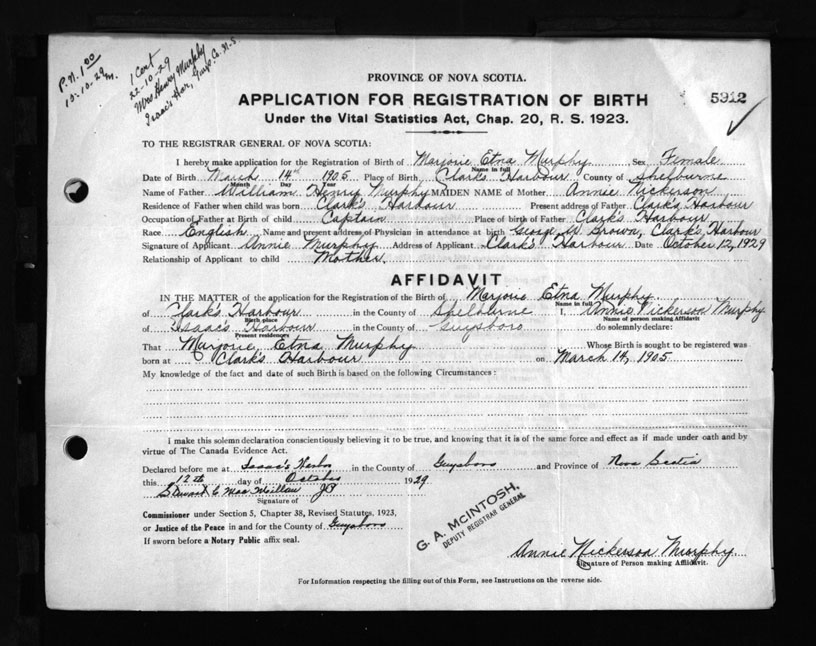 P.N. 1.00
15-10-29
1 Cent
22-10-29
Mrs Henry Murphy
Isaac's Har, Guys. Co. N.S.
PROVINCE OF NOVA SCOTIA.
APPLICATION FOR REGISTRATION OF BIRTH 5912
Under the Vital Statistics Act, Chap. 20, R. S. 1923.
TO THE REGISTRAR GENERAL OF NOVA SCOTIA:
I hereby make application for the Registration of Birth of Marjorie Etna Murphy Sex Female
Name in full
Date of Birth March 14th 1905 Place of Birth Clark's Harbour County of Shelburne
Month Day Year
Name of Father William Henry Murphy MAIDEN NAME of Mother Annie Nickerson
Residence of Father when child was born Clark's Harbour Present address of Father Clark's Harbour
Occupation of Father at Birth of child Captain Place of birth of Father Clark's Harbour
Race English Name and present address of Physician in attendance at birth George W. Brown, Clark's Harbour
Signature of Applicant Annie Murphy Address of Applicant Clark's Harbour Date October 12, 1929
Relationship of Applicant to child Mother.
AFFIDAVIT
IN THE MATTER of the application for the Registration of the Birth of Marjorie Etna Murphy
Name in full
of Clark's Harbour in the County of Shelburne I, Annie Nickerson Murphy
Birth place Name of person making Affidavit
of Isaac's Harbour in the County of Guysboro do solemnly declare:
Present residence
That Marjorie Etna Murphy Whose Birth is sought to be registered was
born at Clark's Harbour on March 14, 1905
My knowledge of the fact and date of such Birth is based on the following Circumstances:
I make this solemn declaration conscientiously believing it to be true, and knowing that it is of the same force and effect as if made under oath and by
virtue of The Canada Evidence Act.
Declared before me at Isaac's Harbor in the County of Guysboro and Province of Nova Scotia
this 12th day of October 1929
JP
Signature of
Commissioner under Section 5, Chapter 38, Revised Statutes, 1923,
or Justice of the Peace in and for the County of Guysboro
If sworn before a Notary Public affix seal.
G. A. McINTOSH,
DEPUTY REGISTRAR GENERAL
Annie Nickerson Murphy
Signature of Person making Affidavit.
For Information respecting the filling out of this Form, see Instructions on the reverse side.